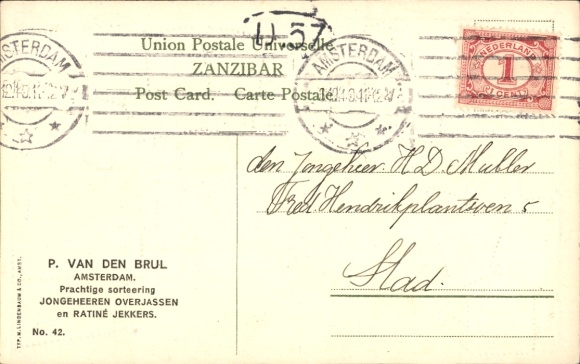 U 57
Union Postale Universelle
ZANZIBAR
Post Card. Carte Postale.
AMSTERDAM
AMSTERDAM
NEDERLAND
1
CENT
den Jongeheer H D Muller
Fred. Hendrikplantsoen 5
Stad.
P. VAN DEN BRUL
AMSTERDAM.
Prachtige sorteering
JONGEHEEREN OVERJASSEN
en RATINÉ JEKKERS.
No. 42.
TYP. M. LINDENBAUM & CO., AMST.